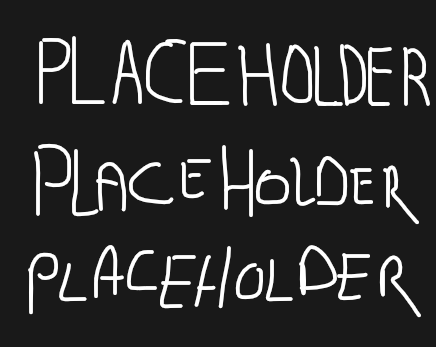 PLACEHOLDER
PLACEHOLDER
PLACEHOLDER